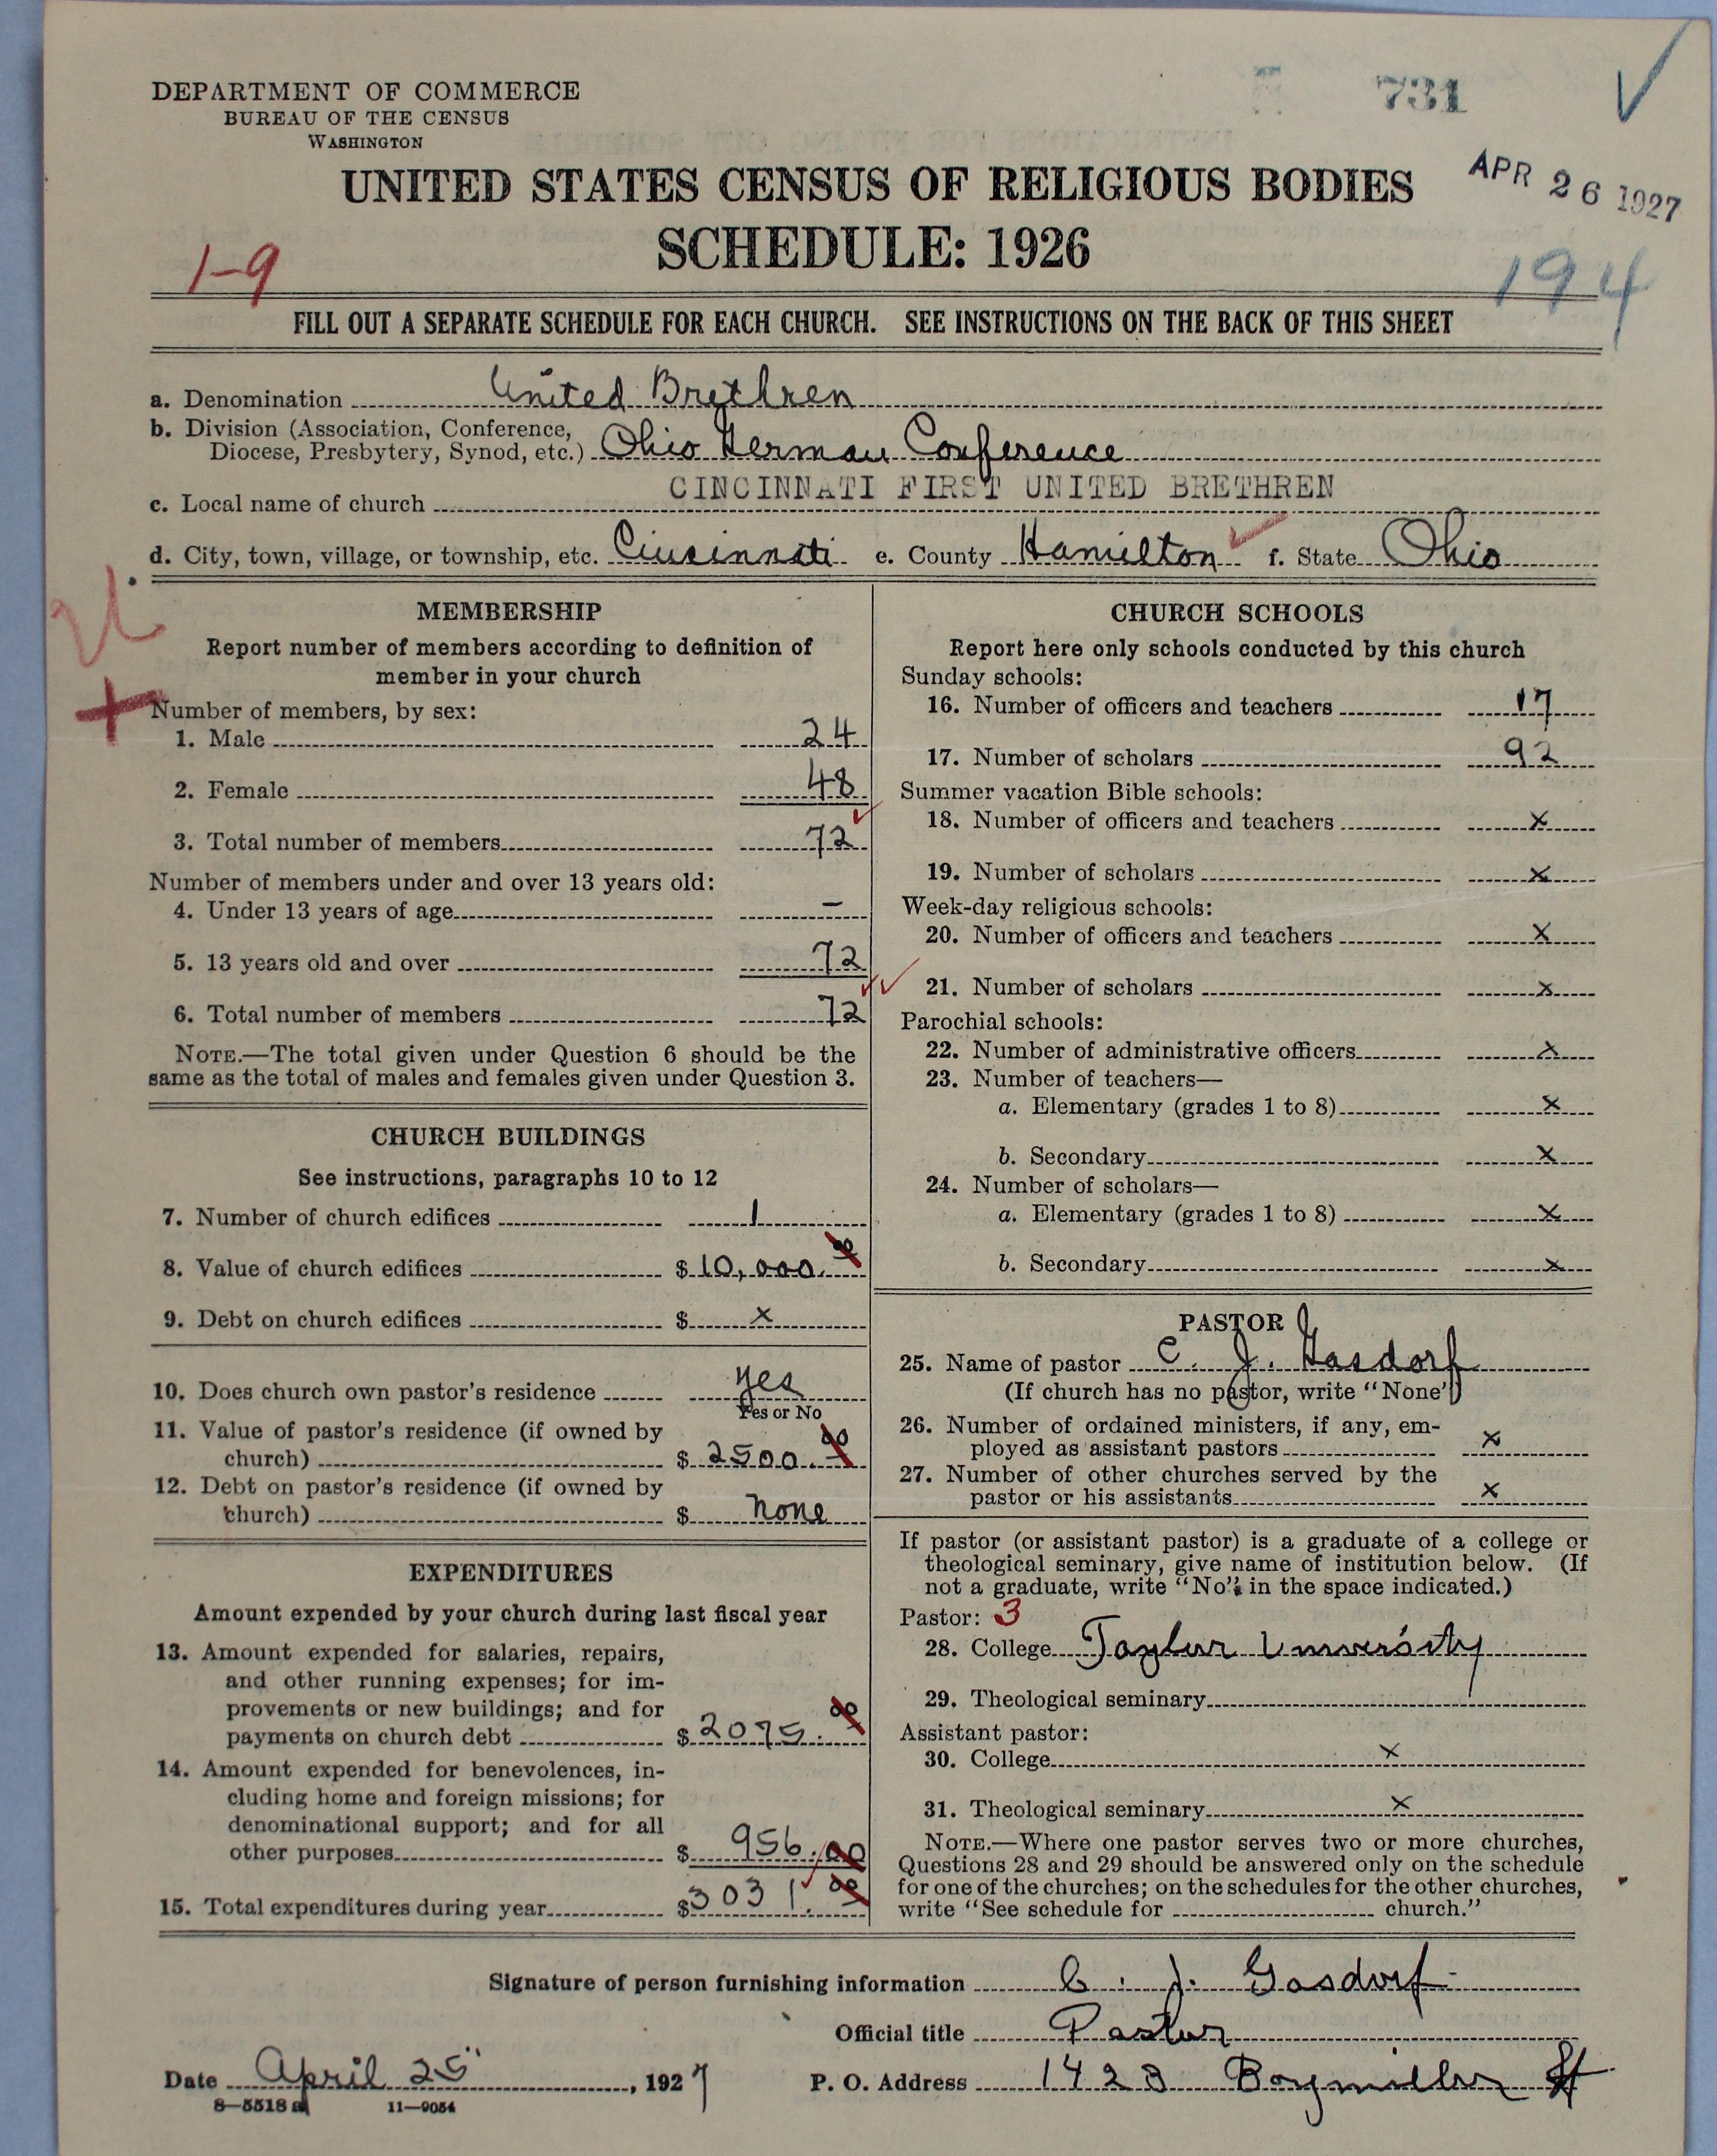 DEPARTMENT OF COMMERCE
BUREAU OF THE CENSUS
WASHINGTON
731
UNITED STATES CENSUS OF RELIGIOUS BODIES
APR 26 1927
SCHEDULE: 1926
1-9
194
FILL OUT A SEPARATE SCHEDULE FOR EACH CHURCH. SEE INSTRUCTIONS ON THE BACK OF THIS SHEET
a. Denomination United Brethren
b. Division (Association, Conference,
Diocese, Presbytery, Synod, etc.) Ohio German Conference
c. Local name of church CINCINNATI FIRST UNITED BRETHREN
d. City, town, village, or township, etc. Cincinnati e. County Hamilton f. State Ohio
MEMBERSHIP
Report number of members according to definition of
member in your church
Number of members, by sex:
1. Male 24
2. Female 48
3. Total number of members 72
Number of members under and over 13 years old:
4. Under 13 years of age –
5. 13 years old and over 72
6. Total number of members 72
NOTE.—The total given under Question 6 should be the
same as the total of males and females given under Question 3.
CHURCH BUILDINGS
See instructions, paragraphs 10 to 12
7. Number of church edifices 1
8. Value of church edifices $ 10,000.00
9. Debt on church edifices $ x
10. Does church own pastor's residence yes
Yes or No
11. Value of pastor's residence (if owned by
church) $ 2500.00
12. Debt on pastor's residence (if owned by
church) $ none
EXPENDITURES
Amount expended by your church during last fiscal year
13. Amount expended for salaries, repairs,
and other running expenses; for im-
provements or new buildings; and for
payments on church debt $ 2075.00
14. Amount expended for benevolences, in-
cluding home and foreign missions; for
denominational support; and for all
other purposes $ 956.00
15. Total expenditures during year $ 3031.00
CHURCH SCHOOLS
Report here only schools conducted by this church
Sunday schools:
16. Number of officers and teachers 17
17. Number of scholars 92
Summer vacation Bible schools:
18. Number of officers and teachers x
19. Number of scholars x
Week-day religious schools:
20. Number of officers and teachers x
21. Number of scholars x
Parochial schools:
22. Number of administrative officers x
23. Number of teachers—
a. Elementary (grades 1 to 8) x
b. Secondary x
24. Number of scholars—
a. Elementary (grades 1 to 8) x
b. Secondary x
PASTOR
25. Name of pastor C. J. Gasdorf
(If church has no pastor, write "None")
26. Number of ordained ministers, if any, em-
ployed as assistant pastors x
27. Number of other churches served by the
pastor or his assistants x
If pastor (or assistant pastor) is a graduate of a college or
theological seminary, give name of institution below. (If
not a graduate, write "No" in the space indicated.)
Pastor: 3
28. College Taylor University
29. Theological seminary
Assistant pastor:
30. College x
31. Theological seminary x
NOTE.—Where one pastor serves two or more churches,
Questions 28 and 29 should be answered only on the schedule
for one of the churches; on the schedules for the other churches,
write "See schedule for church."
Signature of person furnishing information C. J. Gasdorf
Official title Pastor
Date April 25, 1927 P. O. Address 1423 Baymiller St
8—5518 a 11—9054